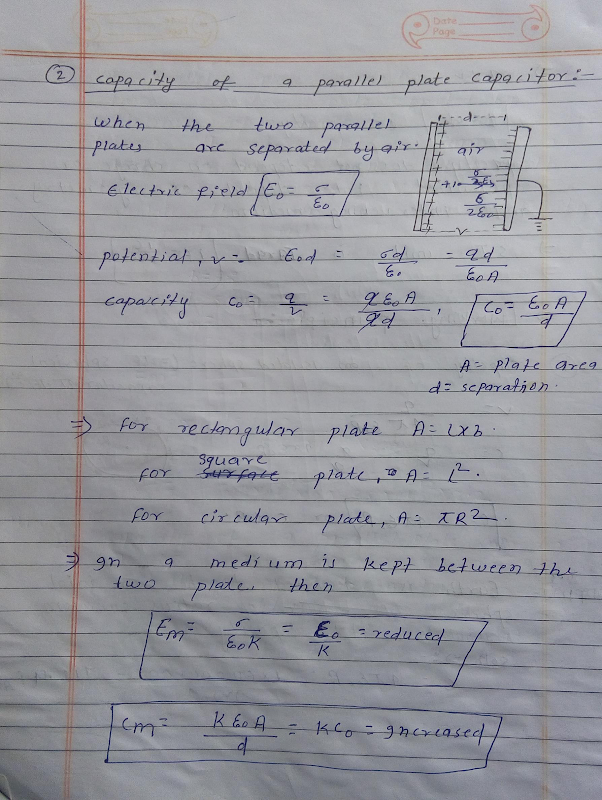 Date
Page
② capacity of a parallel plate capacitor :-
when the two parallel
plates are separated by air.
d
air
σ/2ε₀
v
Electric field E₀ = σ/ε₀
potential, v = E₀d = σd/ε₀ = qd/ε₀A
capacity C₀ = q/v = qε₀A/qd, C₀ = ε₀A/d
A = plate area
d = separation.
⇒ for rectangular plate A = l×b.
for square plate, A = L².
for circular plate, A = πR².
⇒ gn a medium is kept between the
two plate. then
Em = σ/ε₀K = E₀/K = reduced
Cm = Kε₀A/d = KC₀ = gncreased